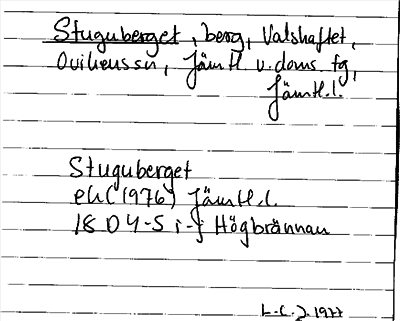 Stuguberget, berg, Valshaftet,
Ovikens sn, Jämtl. v. doms. tg,
Jämtl. l.
Stuguberget
ek (1976) Jämtl. l.
18 D 4-5 i-j Högbrännan
L.C.J. 1977